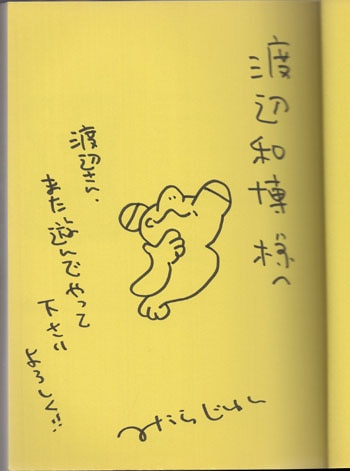 渡辺和博様へ
渡辺さん、
また遊んでやって
下さい
よろしく!!
みうらじゅん